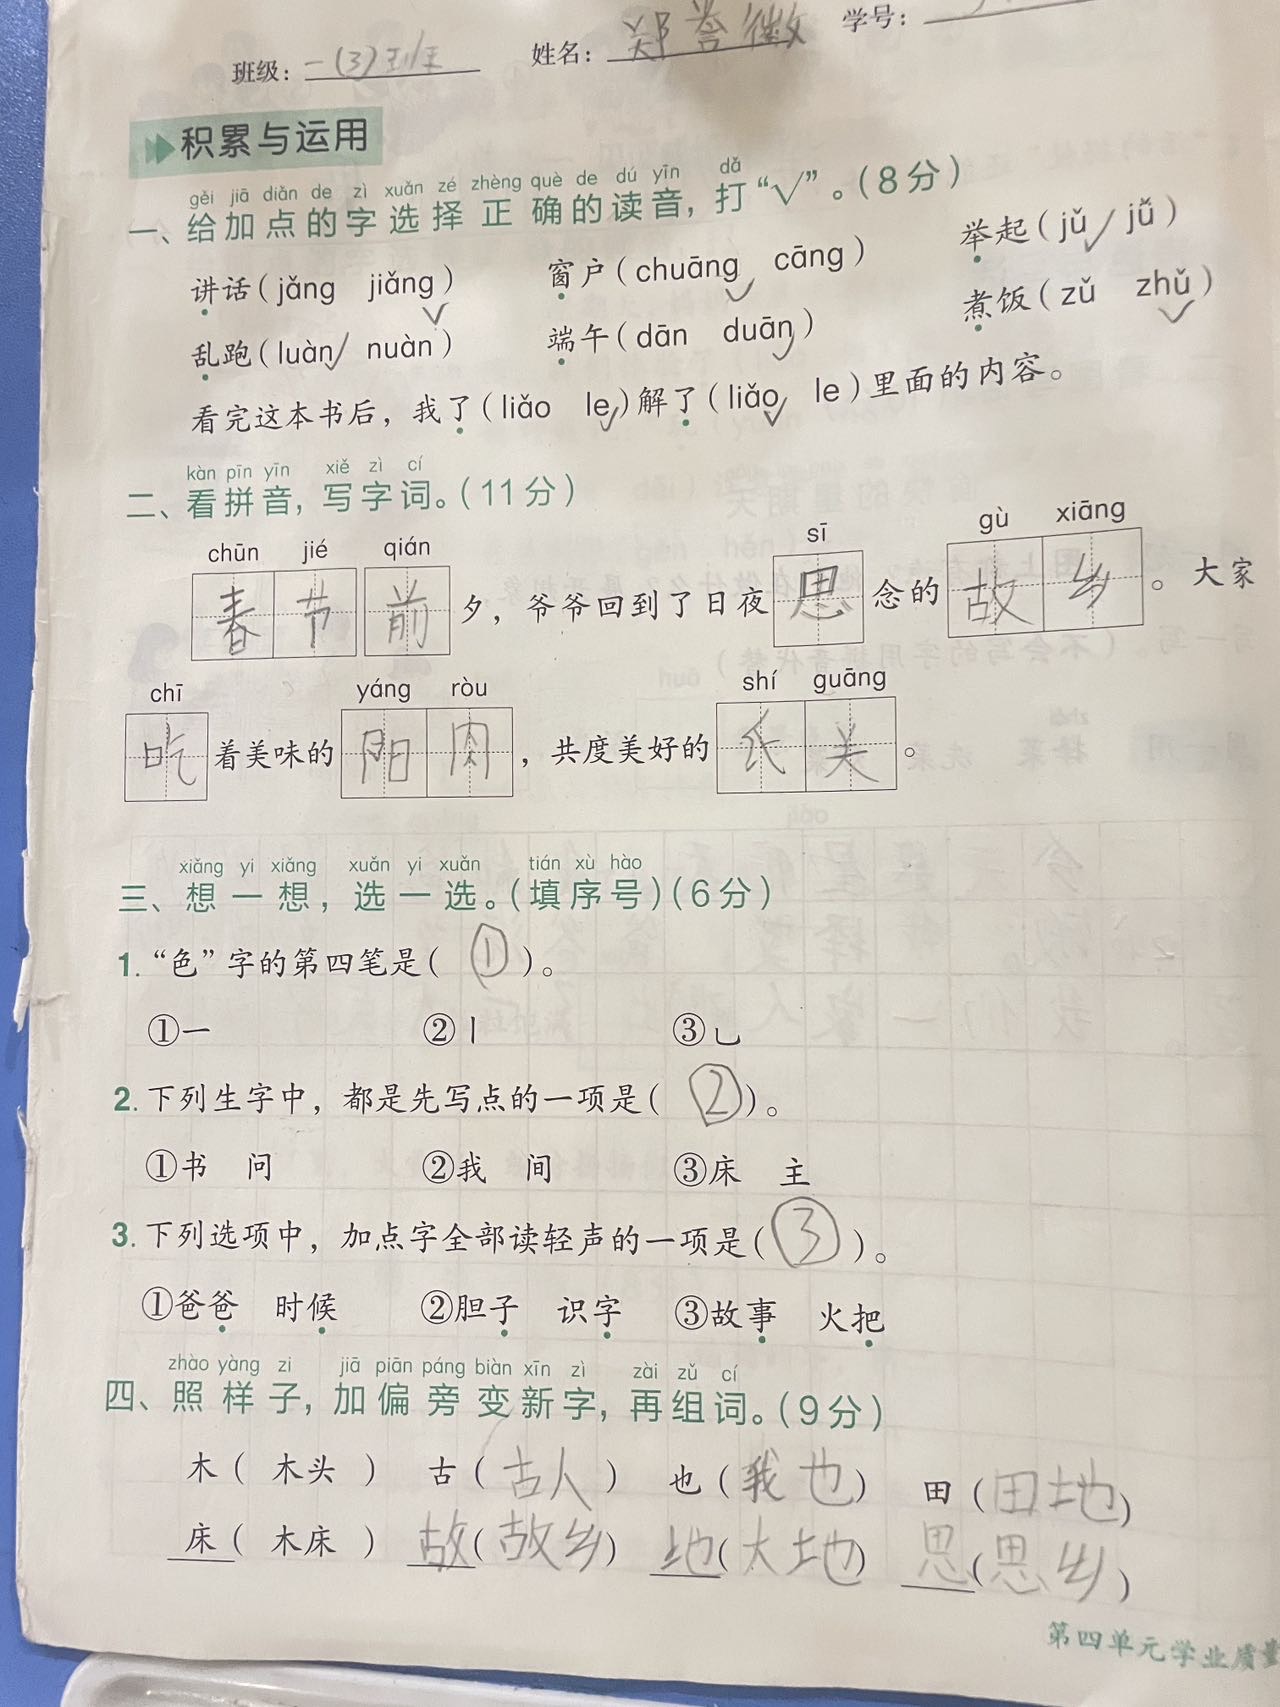 班级：一(3)班 姓名：郑誉徽 学号：
积累与运用
gěi jiā diǎn de zì xuǎn zé zhèng què de dú yīn dǎ
一、给加点的字选择正确的读音，打“√”。（8分）
讲话（jǎng jiǎng√） 窗户（chuāng√ cāng） 举起（jǔ√ jǚ）
乱跑（luàn√ nuàn） 端午（dān duān√） 煮饭（zǔ zhǔ√）
看完这本书后，我了（liǎo le√）解了（liǎo√ le）里面的内容。
kàn pīn yīn xiě zì cí
二、看拼音，写字词。（11分）
chūn jié qián sī gù xiāng
春节前夕，爷爷回到了日夜思念的故乡。大家
chī yáng ròu shí guāng
吃着美味的阳肉，共度美好的氏美。
xiǎng yi xiǎng xuǎn yi xuǎn tián xù hào
三、想一想，选一选。（填序号）（6分）
1.“色”字的第四笔是（①）。
①一 ②丨 ③乚
2.下列生字中，都是先写点的一项是（②）。
①书 问 ②我 间 ③床 主
3.下列选项中，加点字全部读轻声的一项是（③）。
①爸爸 时候 ②胆子 识字 ③故事 火把
zhào yàng zi jiā piān páng biàn xīn zì zài zǔ cí
四、照样子，加偏旁变新字，再组词。（9分）
木（木头） 古（古人） 也（我也） 田（田地）
床（木床） 故（故乡） 地（大地） 思（思乡）
第四单元学业质量